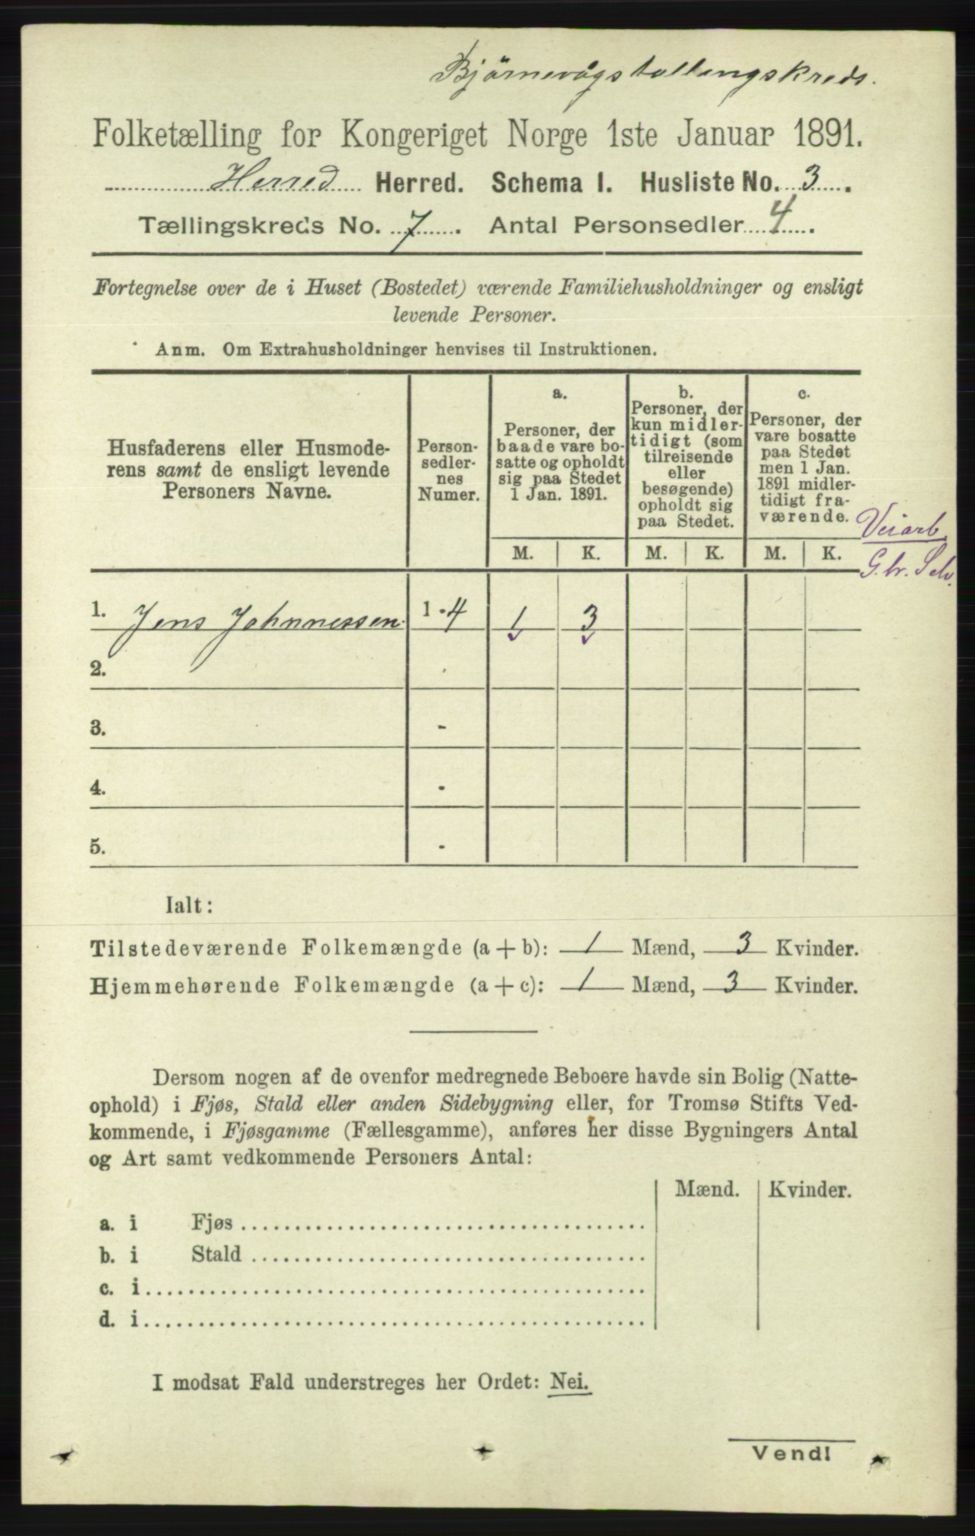 Bjørnevågs tællingskreds.
Folketælling for Kongeriget Norge 1ste Januar 1891.
Herred Herred. Schema I. Husliste No. 3.
Tællingskreds No. 7. Antal Personsedler 4.
Fortegnelse over de i Huset (Bostedet) værende Familiehusholdninger og ensligt
levende Personer.
Anm. Om Extrahusholdninger henvises til Instruktionen.
Husfaderens eller Husmode-
rens samt de ensligt levende
Personers Navne.
Person-
sedler-
nes
Numer.
a.
Personer, der
baade vare bo-
satte og opholdt
sig paa Stedet
1 Jan. 1891.
b.
Personer, der
kun midler-
tidigt (som
tilreisende
eller
besøgende)
opholdt sig
paa Stedet.
c.
Personer, der
vare bosatte
paa Stedet
men 1 Jan.
1891 midler-
tidigt fra-
værende.
M. K. M. K. M. K.
Veiarb.
G. br. Selv.
1. Jens Johnnessen 1-4 1 3
2.
3. -
4. -
5. -
Ialt:
Tilstedeværende Folkemængde (a + b): 1 Mænd, 3 Kvinder.
Hjemmehørende Folkemængde (a + c): 1 Mænd, 3 Kvinder.
Dersom nogen af de ovenfor medregnede Beboere havde sin Bolig (Natte-
ophold) i Fjøs, Stald eller anden Sidebygning eller, for Tromsø Stifts Ved-
kommende, i Fjøsgamme (Fællesgamme), anføres her disse Bygningers Antal
og Art samt vedkommende Personers Antal:
Mænd. Kvinder.
a. i Fjøs
b. i Stald
c. i
d. i
I modsat Fald understreges her Ordet: Nei.
Vend!